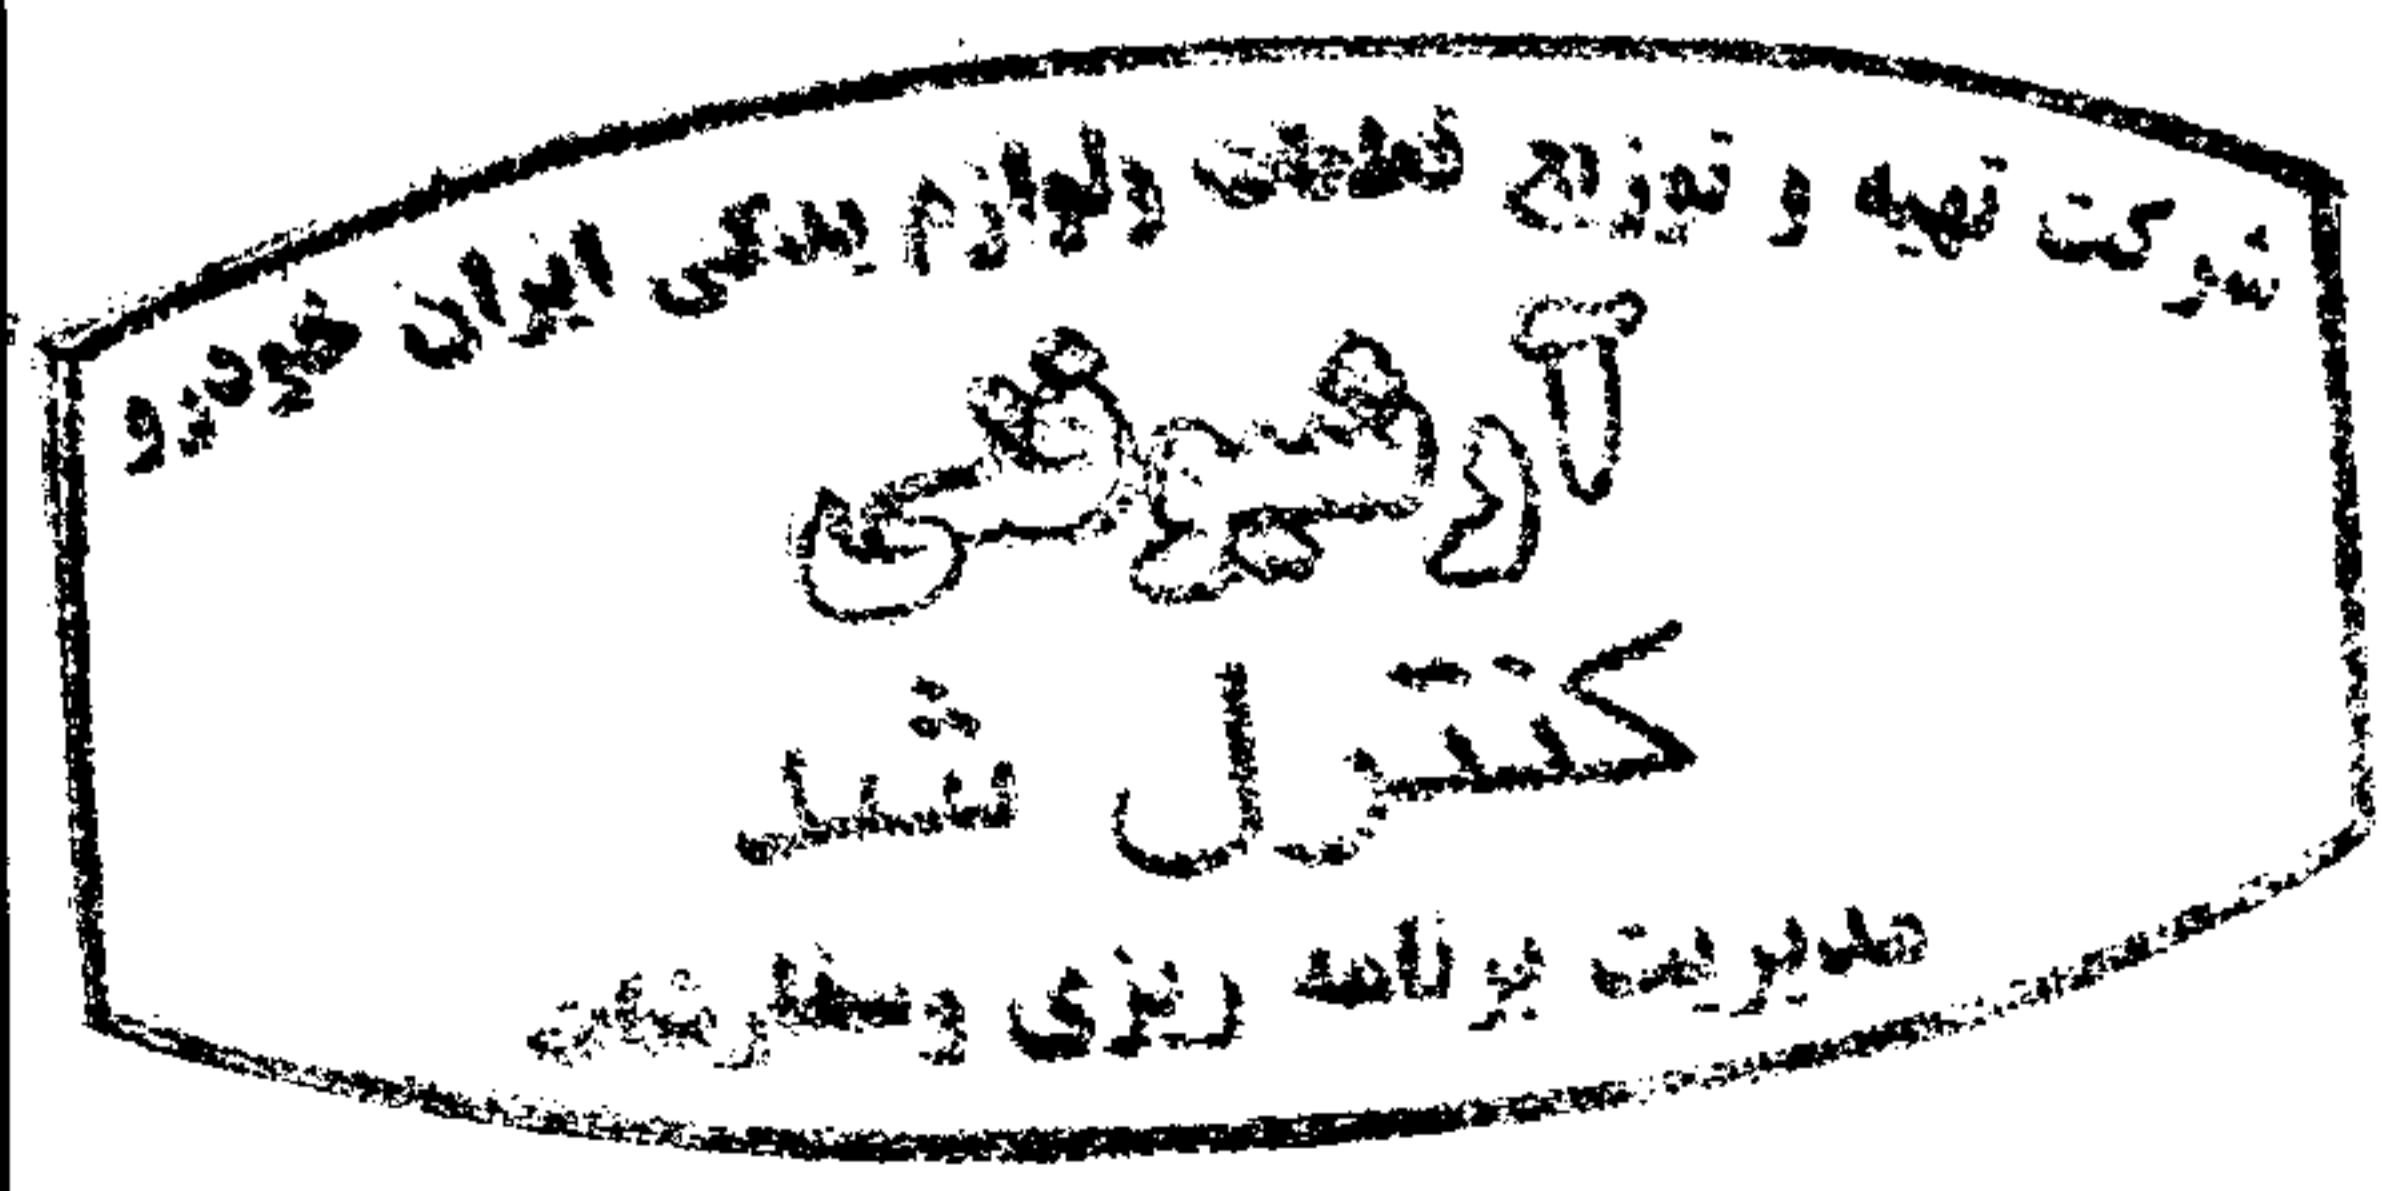 شرکت تهیه و توزیع قطعات و لوازم یدکی ایران خودرو
آرشیو فنی
کنترل شد
مدیریت برنامه ریزی و سفارشات